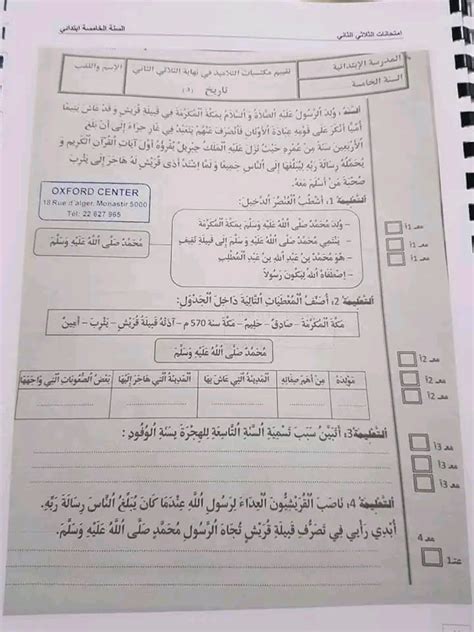 امتحانات الثلاثي الثاني
السنة الخامسة ابتدائي
المدرسة الإبتدائية
السنة الخامسة
تقييم مكتسبات التلاميذ في نهاية الثلاثي الثاني
تاريخ
الإسم واللقب
السند: وُلِدَ الرَّسُولُ عَلَيْهِ الصَّلَاةُ وَ السَّلَامُ بِمَكَّةَ الْمُكَرَّمَةِ فِي قَبِيلَةِ قُرَيْشٍ وَ قَدْ عَاشَ يَتِيمًا
أُمِّيًّا أَنْكَرَ عَلَى قَوْمِهِ عِبَادَةَ الْأَوْثَانِ فَانْصَرَفَ عَنْهُمْ يَتَعَبَّدُ فِي غَارِ حِرَاءَ إِلَى أَنْ بَلَغَ
الْأَرْبَعِينَ سَنَةً مِنْ عُمُرِهِ حَيْثُ نَزَلَ عَلَيْهِ الْمَلَكُ جِبْرِيلُ يُقْرِؤُهُ أُولَى آيَاتِ الْقُرْآنِ الْكَرِيمِ وَ
يُحَمِّلُهُ رِسَالَةَ رَبِّهِ لِيُبَلِّغَهَا إِلَى النَّاسِ جَمِيعًا وَ لَمَّا اشْتَدَّ أَذَى قُرَيْشٍ لَهُ هَاجَرَ إِلَى يَثْرِبَ
صُحْبَةَ مَنْ أَسْلَمَ مَعَهُ.
OXFORD CENTER
18 Rue d'alger, Monastir 5000
Tél: 22 627 965
التعليمة 1: أَشْطُبُ الْعُنْصُرَ الدَّخِيلَ:
– وُلِدَ مُحَمَّدٌ صَلَّى اللَّهُ عَلَيْهِ وَسَلَّمَ بِمَكَّةَ الْمُكَرَّمَةِ
– يَنْتَمِي مُحَمَّدٌ صَلَّى اللَّهُ عَلَيْهِ وَسَلَّمَ إِلَى قَبِيلَةِ ثَقِيفٍ
– هُوَ مُحَمَّدُ بْنُ عَبْدِ اللَّهِ بْنِ عَبْدِ الْمُطَّلِبِ
– اِصْطَفَاهُ اللَّهُ لِيَكُونَ رَسُولاً
مُحَمَّدٌ صَلَّى اللَّهُ عَلَيْهِ وَسَلَّمَ
معـ 1أ
معـ 1أ
معـ 1أ
التعليمة 2: أُصَنِّفُ الْمُعْطَيَاتِ التَّالِيَةَ دَاخِلَ الْجَدْوَلِ:
مَكَّةَ الْمُكَرَّمَةَ – صَادِقٌ – حَلِيمٌ – مَكَّةَ سَنَةَ 570 م – آذَتْهُ قَبِيلَةُ قُرَيْشٍ – يَثْرِبَ – أَمِينٌ
مُحَمَّدٌ صَلَّى اللَّهُ عَلَيْهِ وَسَلَّمَ
مَوْلِدُهُ
مِنْ أَهَمِّ صِفَاتِهِ
الْمَدِينَةُ الَّتِي عَاشَ بِهَا
الْمَدِينَةُ الَّتِي هَاجَرَ إِلَيْهَا
بَعْضُ الصُّعُوبَاتِ الَّتِي وَاجَهَهَا
معـ 2أ
معـ 2أ
معـ 2أ
التعليمة 3: أَتَبَيَّنُ سَبَبَ تَسْمِيَةِ السَّنَةِ التَّاسِعَةِ لِلْهِجْرَةِ بِسَنَةِ الْوُفُودِ:
معـ 3أ
معـ 3أ
معـ 3أ
التعليمة 4: نَاصَبَ الْقُرَيْشِيُّونَ الْعِدَاءَ لِرَسُولِ اللَّهِ عِنْدَمَا كَانَ يُبَلِّغُ النَّاسَ رِسَالَةَ رَبِّهِ.
أُبْدِي رَأْيِي فِي تَصَرُّفِ قَبِيلَةِ قُرَيْشٍ تُجَاهَ الرَّسُولِ مُحَمَّدٍ صَلَّى اللَّهُ عَلَيْهِ وَسَلَّمَ.
معـ 4